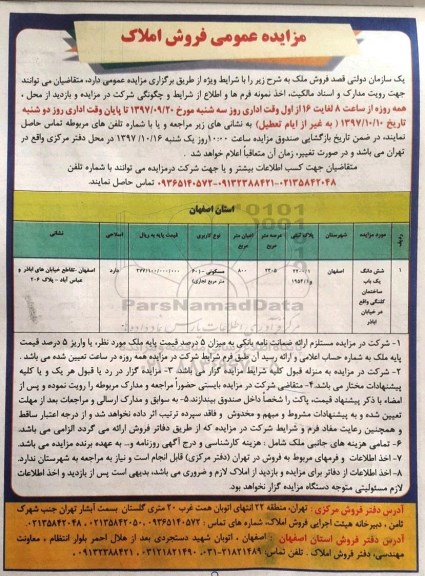 مزایده عمومی فروش املاک
یک سازمان دولتی قصد فروش ملک به شرح زیر را با شرایط ویژه از طریق برگزاری مزایده عمومی دارد، متقاضیان می توانند
جهت رویت مدارک و اسناد مالکیت، اخذ نمونه فرم ها و اطلاع از شرایط و چگونگی شرکت در مزایده و بازدید از محل ،
همه روزه از ساعت ۸ لغایت ۱۶ از اول وقت اداری روز سه شنبه مورخ ۱۳۹۷/۰۹/۲۰ تا پایان وقت اداری روز دو شنبه
تاریخ ۱۳۹۷/۱۰/۱۰ ( به غیر از ایام تعطیل) به نشانی های زیر مراجعه و یا با شماره تلفن های مربوطه تماس حاصل
نمایند، در ضمن تاریخ بازگشایی صندوق مزایده ساعت ۱۰:۰۰ روز یک شنبه ۱۳۹۷/۱۰/۱۶ در محل دفتر مرکزی واقع در
تهران می باشد و در صورت تغییر، زمان آن متعاقباً اعلام خواهد شد .
متقاضیان جهت کسب اطلاعات بیشتر و یا جهت شرکت درمزایده می توانند با شماره تلفن
۰۲۱۳۵۸۴۲۰۴۸-۰۹۱۳۲۳۸۸۴۲۱-۰۹۳۶۵۱۴۰۵۷۲ تماس حاصل نمایند.
استان اصفهان
ردیف مورد مزایده شهرستان پلاک ثبتی عرصه متر مربع اعیان متر مربع نوع کاربری قیمت پایه به ریال اسلاحی نشانی
۱ شش دانگ یک باب ساختمان کلنگی واقع در خیابان اباذر اصفهان ۲۳۰۵ ۸۰۰ مسکونی - (۶۰ متر مربع تجاری) ۲۷۷/۱۰۰/۰۰۰/۰۰۰ دارد اصفهان -تقاطع خیابان های اباذر و عباس آباد - پلاک ۲۰۶
ParsNamadData
۱- شرکت در مزایده مستلزم ارائه ضمانت نامه بانکی به میزان ۵ درصد قیمت پایه ملک مورد نظر، یا واریز ۵ درصد قیمت
پایه ملک به شماره حساب اعلامی و ارائه رسید آن طبق فرم شرایط شرکت در مزایده همه روزه در ساعت تعیین شده می باشد .
۲- شرکت در مزایده به منزله قبول کلیه شرایط مزایده گزار می باشد .۳- مزایده گزار در رد یا قبول هر یک و یا کلیه
پیشنهادات مختار می باشد.۴- متقاضی شرکت در مزایده بایستی حضوراً مراجعه و مدارک مربوطه را رویت نموده و پس از
امضاء با ذکر پیشنهاد قیمت، پاکت را شخصاً داخل صندوق بیندازند.۵- به سوابق و مدارک ارسالی و مراجعات بعد از مهلت
تعیین شده و به پیشنهادات مشروط و مبهم و مخدوش و فاقد سپرده ترتیب اثر داده نخواهد شد و از درجه اعتبار ساقط
و همچنین رعایت مفاد فرم و شرایط شرکت در مزایده که از طریق دفاتر فروش ارائه می گردد الزامی می باشد.
۶- تمامی هزینه های جانبی ملک شامل : هزینه کارشناسی و درج آگهی روزنامه و... به عهده برنده مزایده می باشد.
۷- اخذ اطلاعات و فرمهای مربوط به فروش در تهران (دفتر مرکزی) قابل انجام است و نیاز به مراجعه به شهرستان ندارد.
۸- اخذ اطلاعات از دفاتر برای مزایده و بازدید از املاک لازم و ضروری می باشد، بدیهی است پس از بازدید و اخذ اطلاعات
لازم مسئولیتی متوجه دستگاه مزایده گزار نخواهد بود.
آدرس دفتر فروش مرکزی : تهران، منطقه ۲۲ انتهای اتوبان همت غرب ۲۰ متری گلستان بسمت آبشار تهران جنب شهرک
ثامن ، دبیرخانه هیئت اجرایی فروش املاک، شماره های تماس : ۰۹۳۶۵۱۴۰۵۷۲، ۰۲۱۳۵۸۴۲۰۵۰ ، ۰۲۱۳۵۸۴۲۰۴۸
آدرس دفتر فروش استان اصفهان : اصفهان ، اتوبان شهید دستجردی بعد از هلال احمر بلوار انتظام ، معاونت
مهندسی، دفتر فروش املاک . تلفن تماس: ۰۳۱-۳۱۸۲۱۴۸۹ ، ۰۳۱۲۱۸۲۱۴۹۰ ، ۰۹۱۳۲۳۸۸۴۲۱